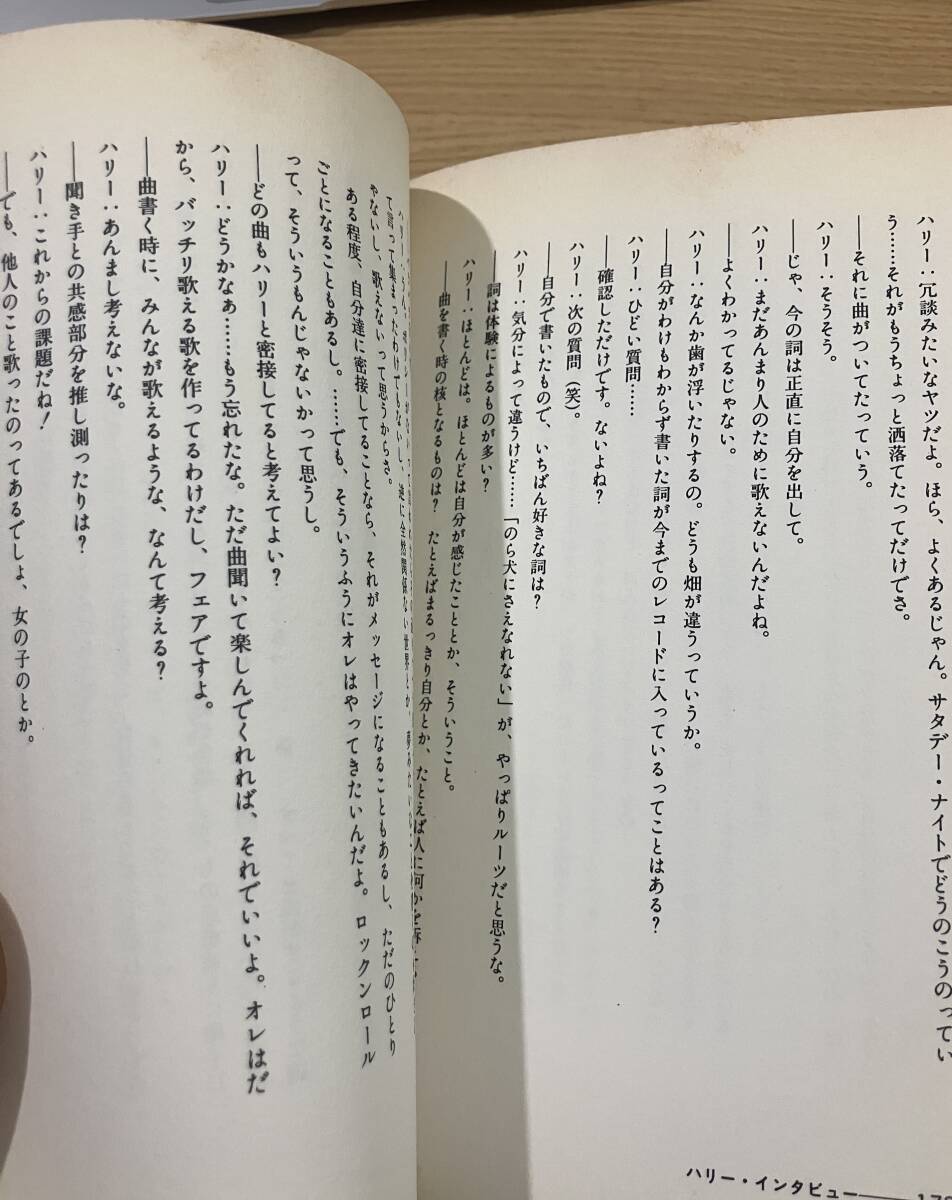 ハリー：冗談みたいなヤツだよ。ほら、よくあるじゃん。サタデー・ナイトでどうのこうのってい
う……それがもうちょっと洒落てたってだけでさ。
――それに曲がついてたっていう。
ハリー：そうそう。
――じゃ、今の詞は正直に自分を出して。
ハリー：まだあんまり人のために歌えないんだよね。
――よくわかってるじゃない。
ハリー：なんか歯が浮いたりするの。どうも畑が違うっていうか。
――自分がわけもわからず書いた詞が今までのレコードに入っているってことはある？
ハリー：ひどい質問……
――確認しただけです。ないよね？
ハリー：次の質問（笑）。
――自分で書いたもので、いちばん好きな詞は？
ハリー：気分によって違うけど……「のら犬にさえなれない」が、やっぱりルーツだと思うな。
――詞は体験によるものが多い？
ハリー：ほとんどは。ほとんどは自分が感じたこととか、そういうこと。
――曲を書く時の核となるものは？　たとえばまるっきり自分とか、たとえば人に何かを訴
ハリー・インタビュー
ハリー：
て言って集まったわけでもないし、逆に全然関係ない世界とか、夢みたい
やないし、歌えないって思うからさ。
ある程度、自分達に密接してることなら、それがメッセージになることもあるし、ただのひとり
ごとになることもあるし。……でも、そういうふうにオレはやってきたいんだよ。ロックンロール
って、そういうもんじゃないかって思うし。
――どの曲もハリーと密接してると考えてよい？
ハリー：どうかなぁ……もう忘れたな。ただ曲聞いて楽しんでくれれば、それでいいよ。オレはだ
から、バッチリ歌える歌を作ってるわけだし、フェアですよ。
――曲書く時に、みんなが歌えるような、なんて考える？
ハリー：あんまし考えないな。
――聞き手との共感部分を推し測ったりは？
ハリー：これからの課題だね！
――でも、他人のこと歌ったのってあるでしょ、女の子のとか。